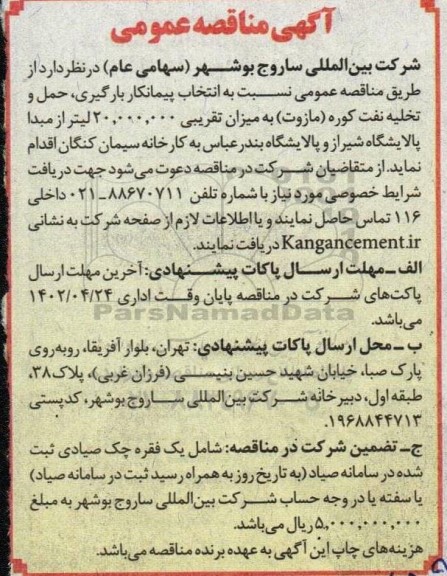 آگهی مناقصه عمومی
شرکت بین‌المللی ساروج بوشهر (سهامی عام) در نظر دارد از
طریق مناقصه عمومی نسبت به انتخاب پیمانکار بارگیری، حمل و
تخلیه نفت کوره (مازوت) به میزان تقریبی ۲۰,۰۰۰,۰۰۰ لیتر از مبدا
پالایشگاه شیراز و پالایشگاه بندرعباس به کارخانه سیمان کنگان اقدام
نماید. از متقاضیان شرکت در مناقصه دعوت می‌شود جهت دریافت
شرایط خصوصی مورد نیاز با شماره تلفن ۸۸۶۷۰۷۱۱-۰۲۱ داخلی
۱۱۶ تماس حاصل نمایند و یا اطلاعات لازم از صفحه شرکت به نشانی
Kangancement.ir دریافت نمایند.
الف ـ مهلت ارسال پاکات پیشنهادی: آخرین مهلت ارسال
پاکت‌های شرکت در مناقصه پایان وقت اداری ۱۴۰۲/۰۴/۲۴
می‌باشد.
ParsNamadData
ب ـ محل ارسال پاکات پیشنهادی: تهران، بلوار آفریقا، روبه‌روی
پارک صبا، خیابان شهید حسین بنیسی (فرزان غربی)، پلاک۳۸،
طبقه اول، دبیرخانه شرکت بین‌المللی ساروج بوشهر، کدپستی
۱۹۶۸۸۴۴۷۱۳.
ج ـ تضمین شرکت در مناقصه: شامل یک فقره چک صیادی ثبت
شده در سامانه صیاد (به تاریخ روز به همراه رسید ثبت در سامانه صیاد)
یا سفته یا در وجه حساب شرکت بین‌المللی ساروج بوشهر به مبلغ
۵,۰۰۰,۰۰۰,۰۰۰ ریال می‌باشد.
هزینه‌های چاپ این آگهی به عهده برنده مناقصه می‌باشد.